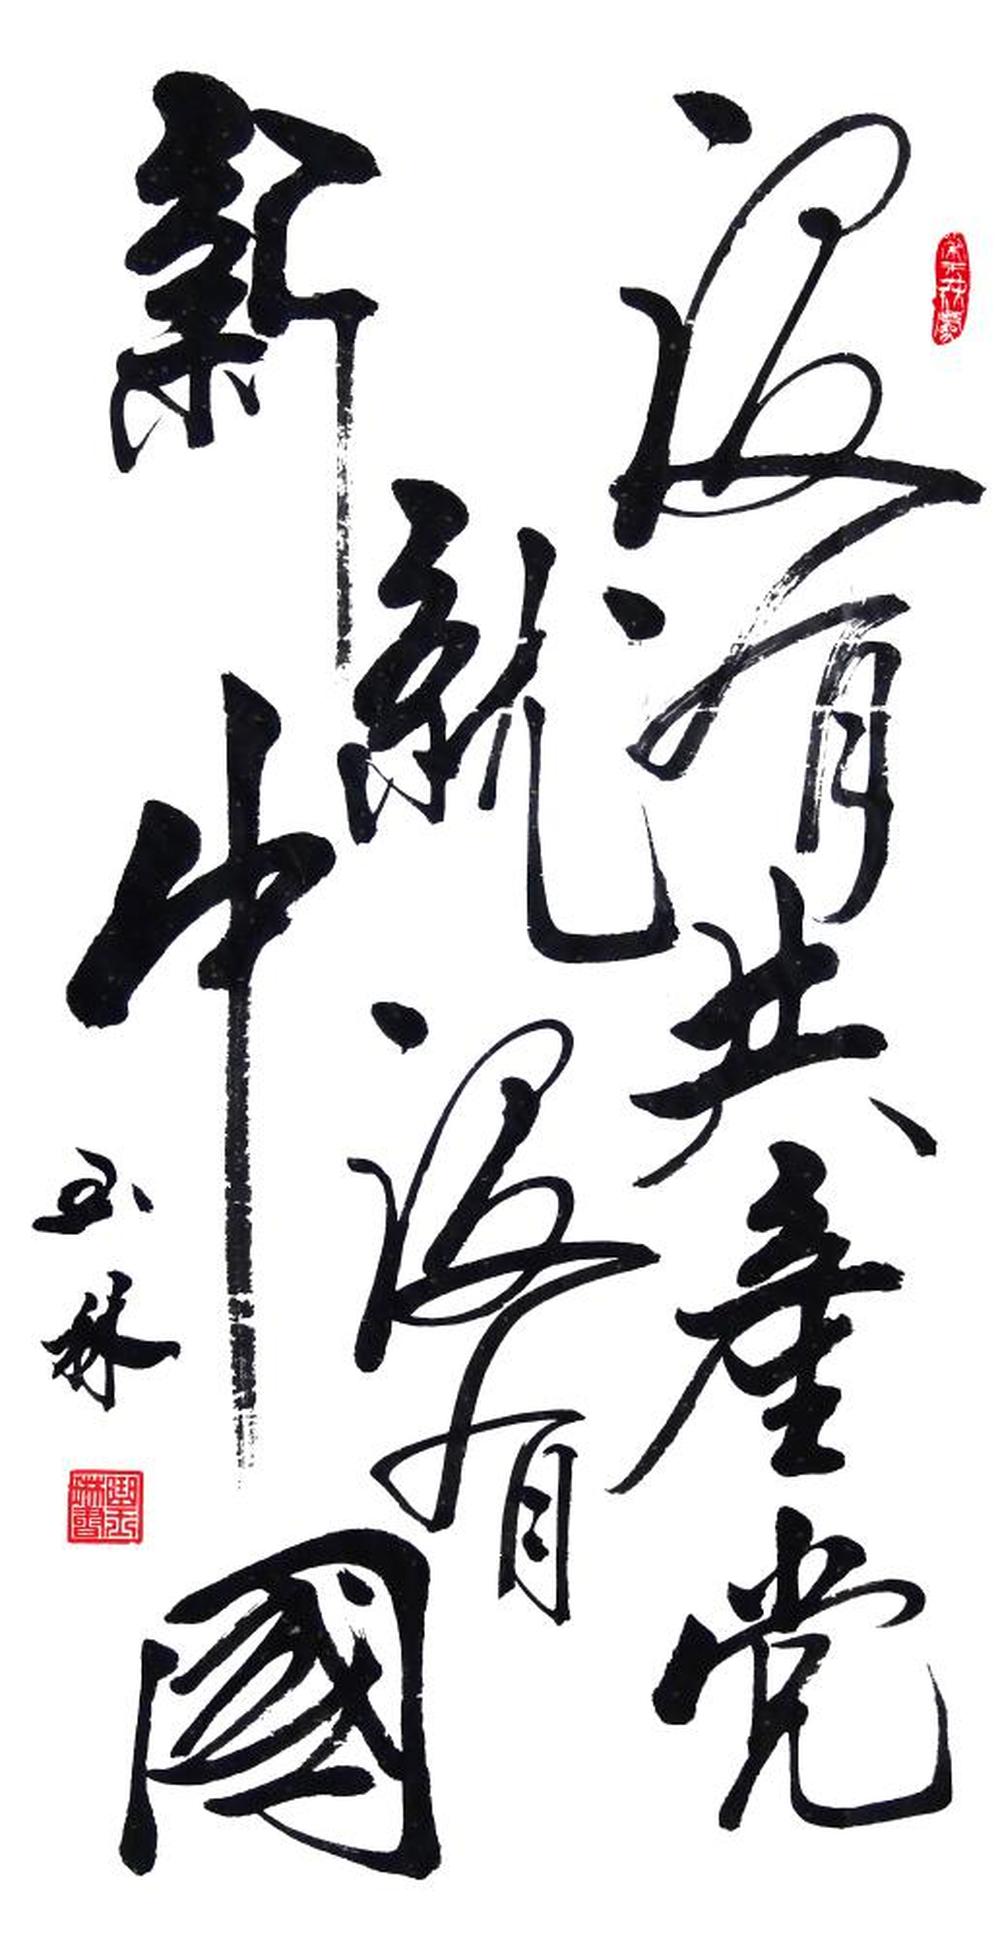 没有共產党
就没有
新中國
玉林